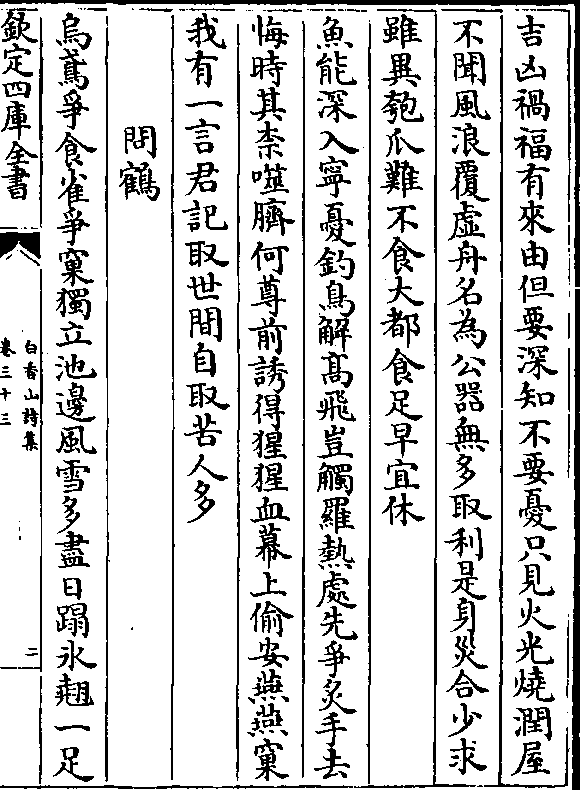 吉凶禍福有來由但要深知不要憂只見火光燒潤屋
不聞風浪覆虚舟名為公器無多取利是身災合少求
雖異匏𤓰難不食大都食足早宜休
魚能深入寧憂釣鳥解髙飛豈觸羅熱處先爭炙手去
悔時其柰噬臍何尊前誘得猩猩血幕上偷安燕燕窠
我有一言君記取世間自取苦人多
問鶴
烏鳶爭食雀爭窠獨立池邊風雪多盡日蹋氷翹一足
欽定四庫全書
白香山詩集
卷三十三
二